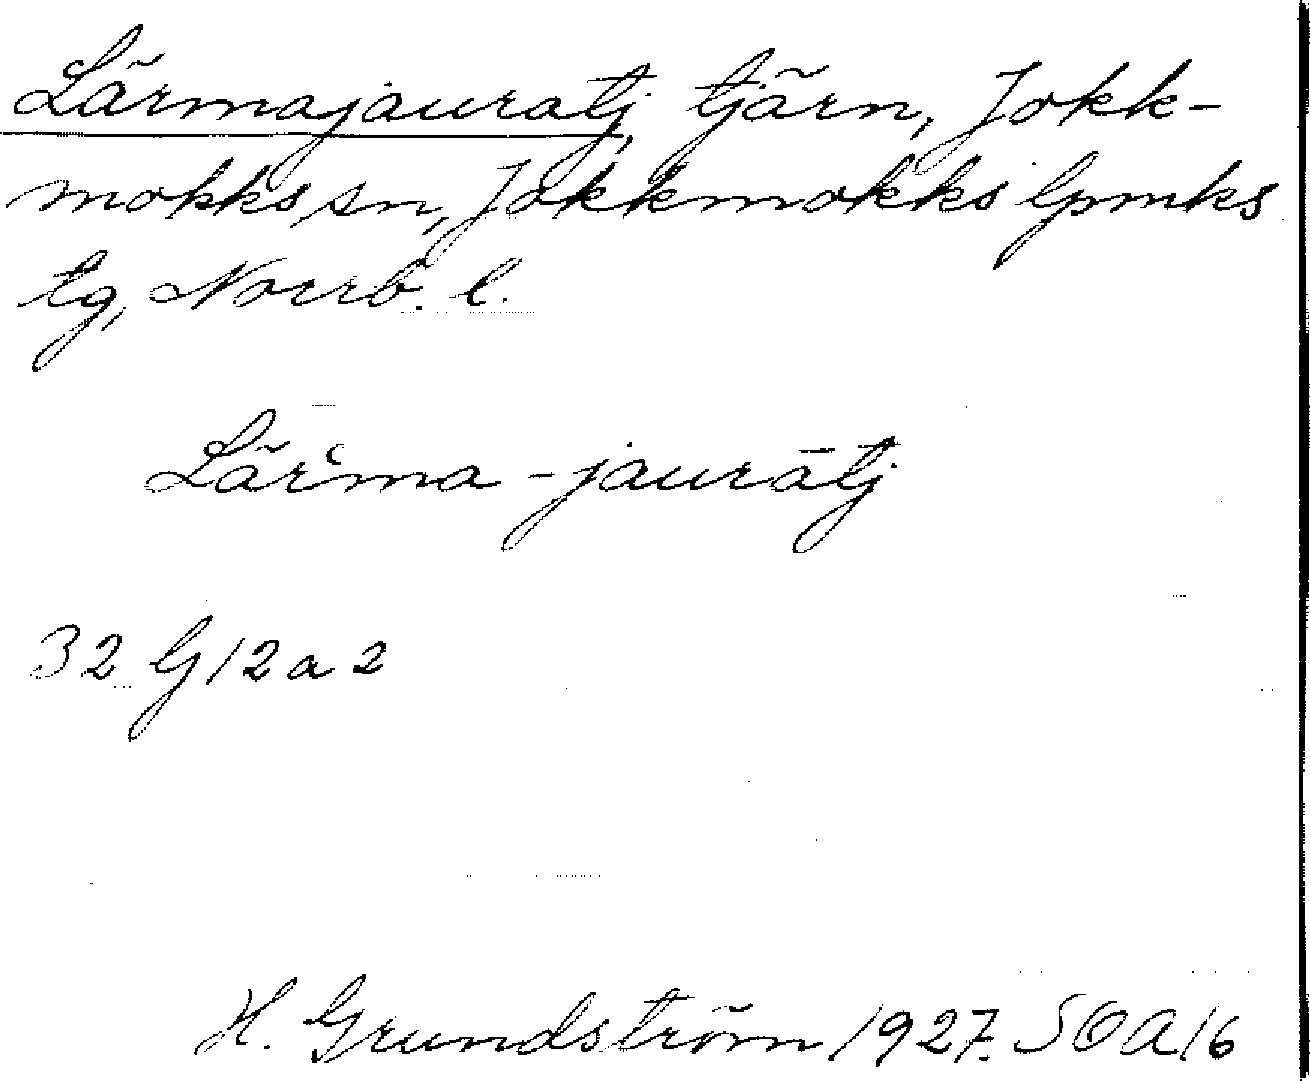 Lärmajauratj, tjärn, Jokk-
mokks sn, Jokkmokks lpmks
tg, Norrb. l.
Lärʿma-jaurātj
32 G 12 a 2
H. Grundström 1927. SOA 16